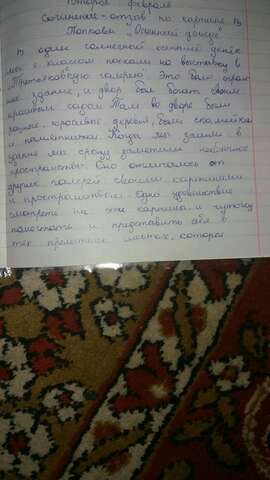 Второе февраля
Сочинение-отзыв по картине В.
Попкова "Осенний дождь"
В один солнечный осенний день
мы с классом поехали на выставку в
"Третьяковскую галерею". Это было огром-
ное здание, и двор был богат своим
красивым садом. Там во дворе были
разные, красивые деревья, были скамейки
и памятники. Когда мы зашли в
здание мы сразу заметили необычное
пространство. Оно отличалось от
других галерей своими картинами
и пространством. Одно удовольствие
смотреть на эти картины и чуточку
помечтать и представить себя в
тех прелестных местах, которые